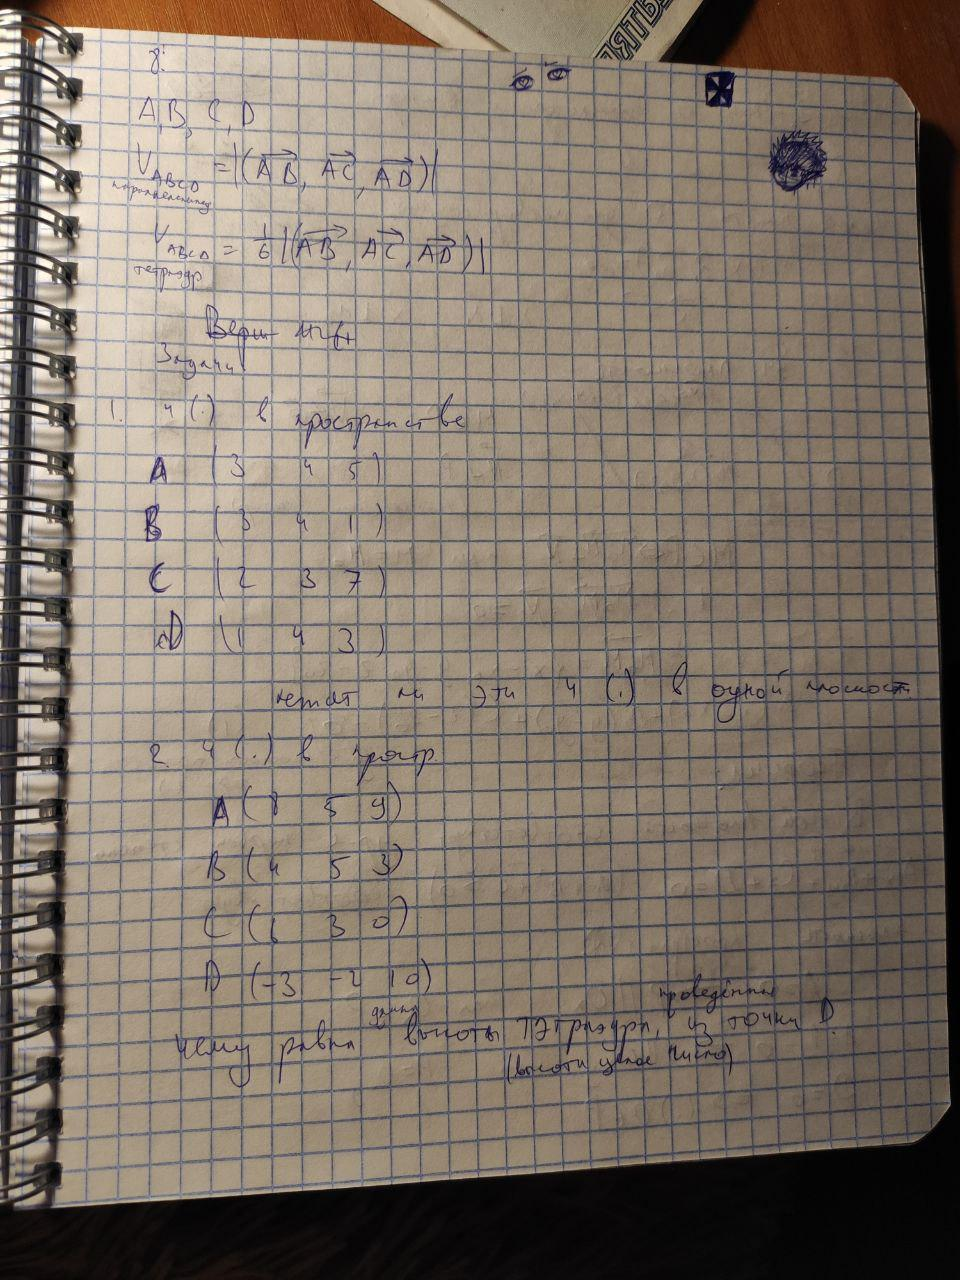 8.
A, B, C, D
V ABCD = |(AB, AC, AD)|
параллелепипед
V ABCD = 1/6 |(AB, AC, AD)|
тетраэдр
Задачи
1. 4 (.) в пространстве
A (3 4 5)
B (3 4 1)
C (2 3 7)
D (1 4 3)
лежат ли эти 4 (.) в одной плоскост
2. 4 (.) в простр.
A (8 5 9)
B (4 5 3)
C (6 3 0)
D (-3 -2 10)
чему равна длина высоты тэтраэдра, проведённая из точки D.
(высота целое число)